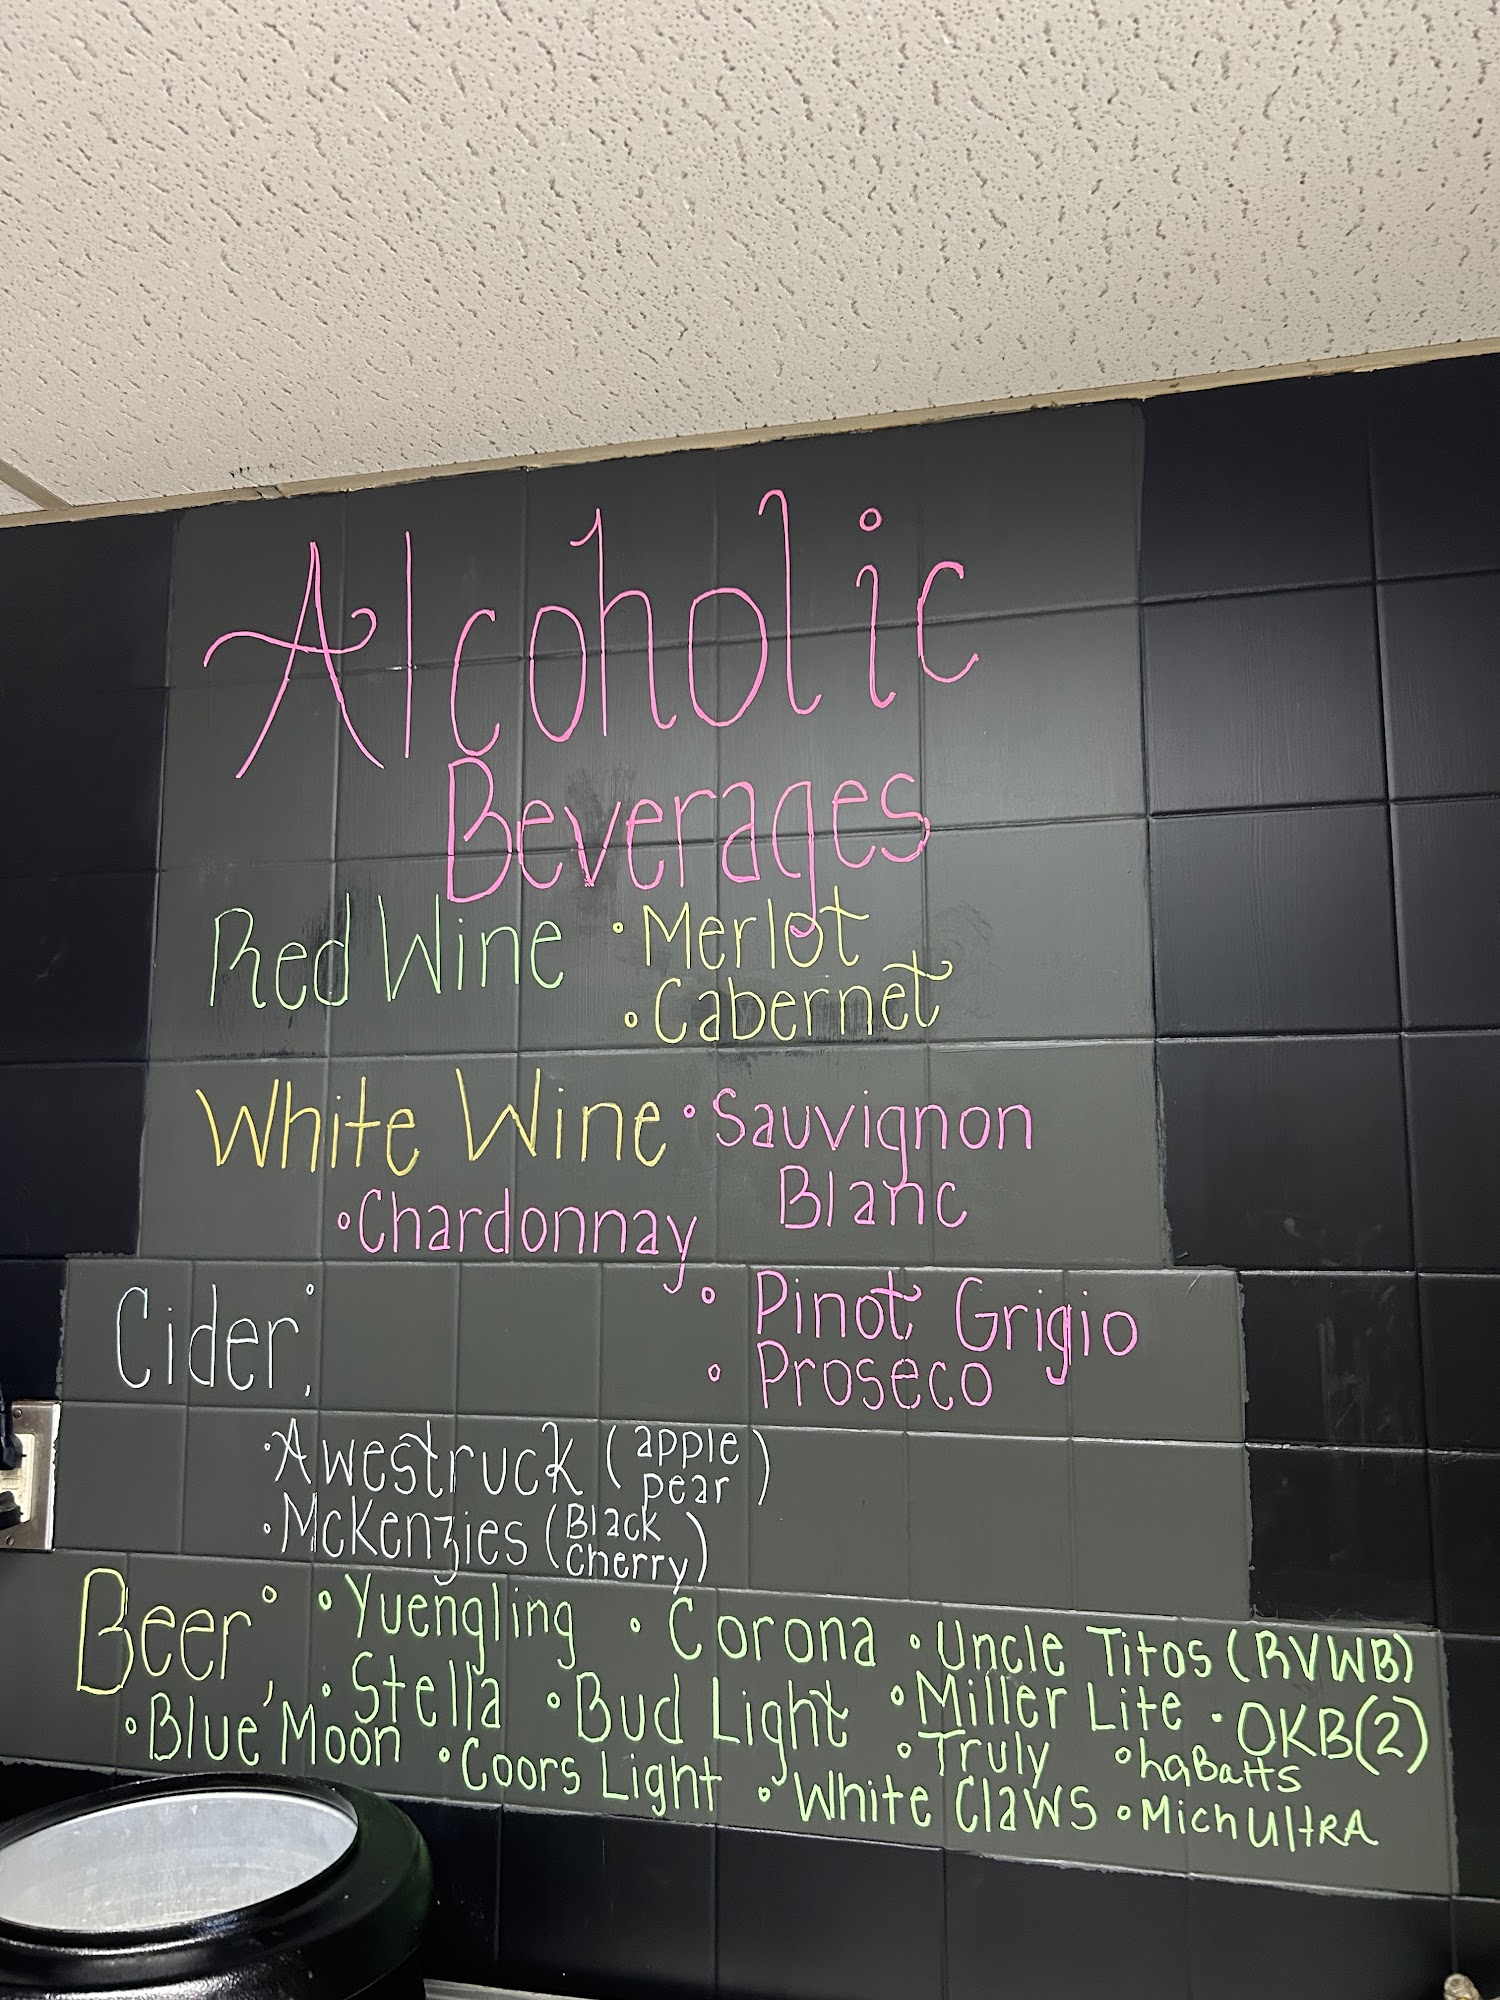 Alcoholic
Beverages
Red Wine • Merlot
• Cabernet
White Wine • Sauvignon
Blanc
• Chardonnay
• Pinot Grigio
• Proseco
Cider:
• Awestruck (apple
pear)
• McKenzies (Black
Cherry)
Beer: • Yuengling • Corona • Uncle Titos (RVWB)
• Stella • Bud Light • Miller Lite • OKB(2)
• Blue Moon • Coors Light • Truly • haBatts
• White Claws • Mich UltRA